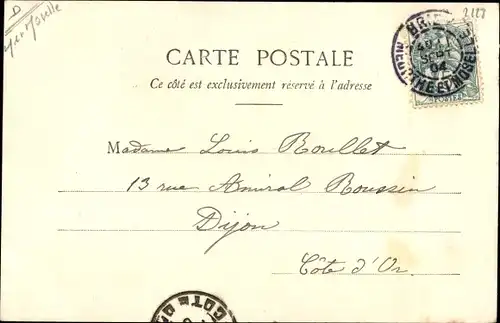 D
Mer Moselle
2128
BRIEY
SEPT
04
MEURTHE ET MOSELLE
POSTES
CARTE POSTALE
Ce côté est exclusivement réservé à l'adresse
Madame Louis Roullet
13 rue Amiral Roussin
Dijon
Côte d'Or
COTE D'OR